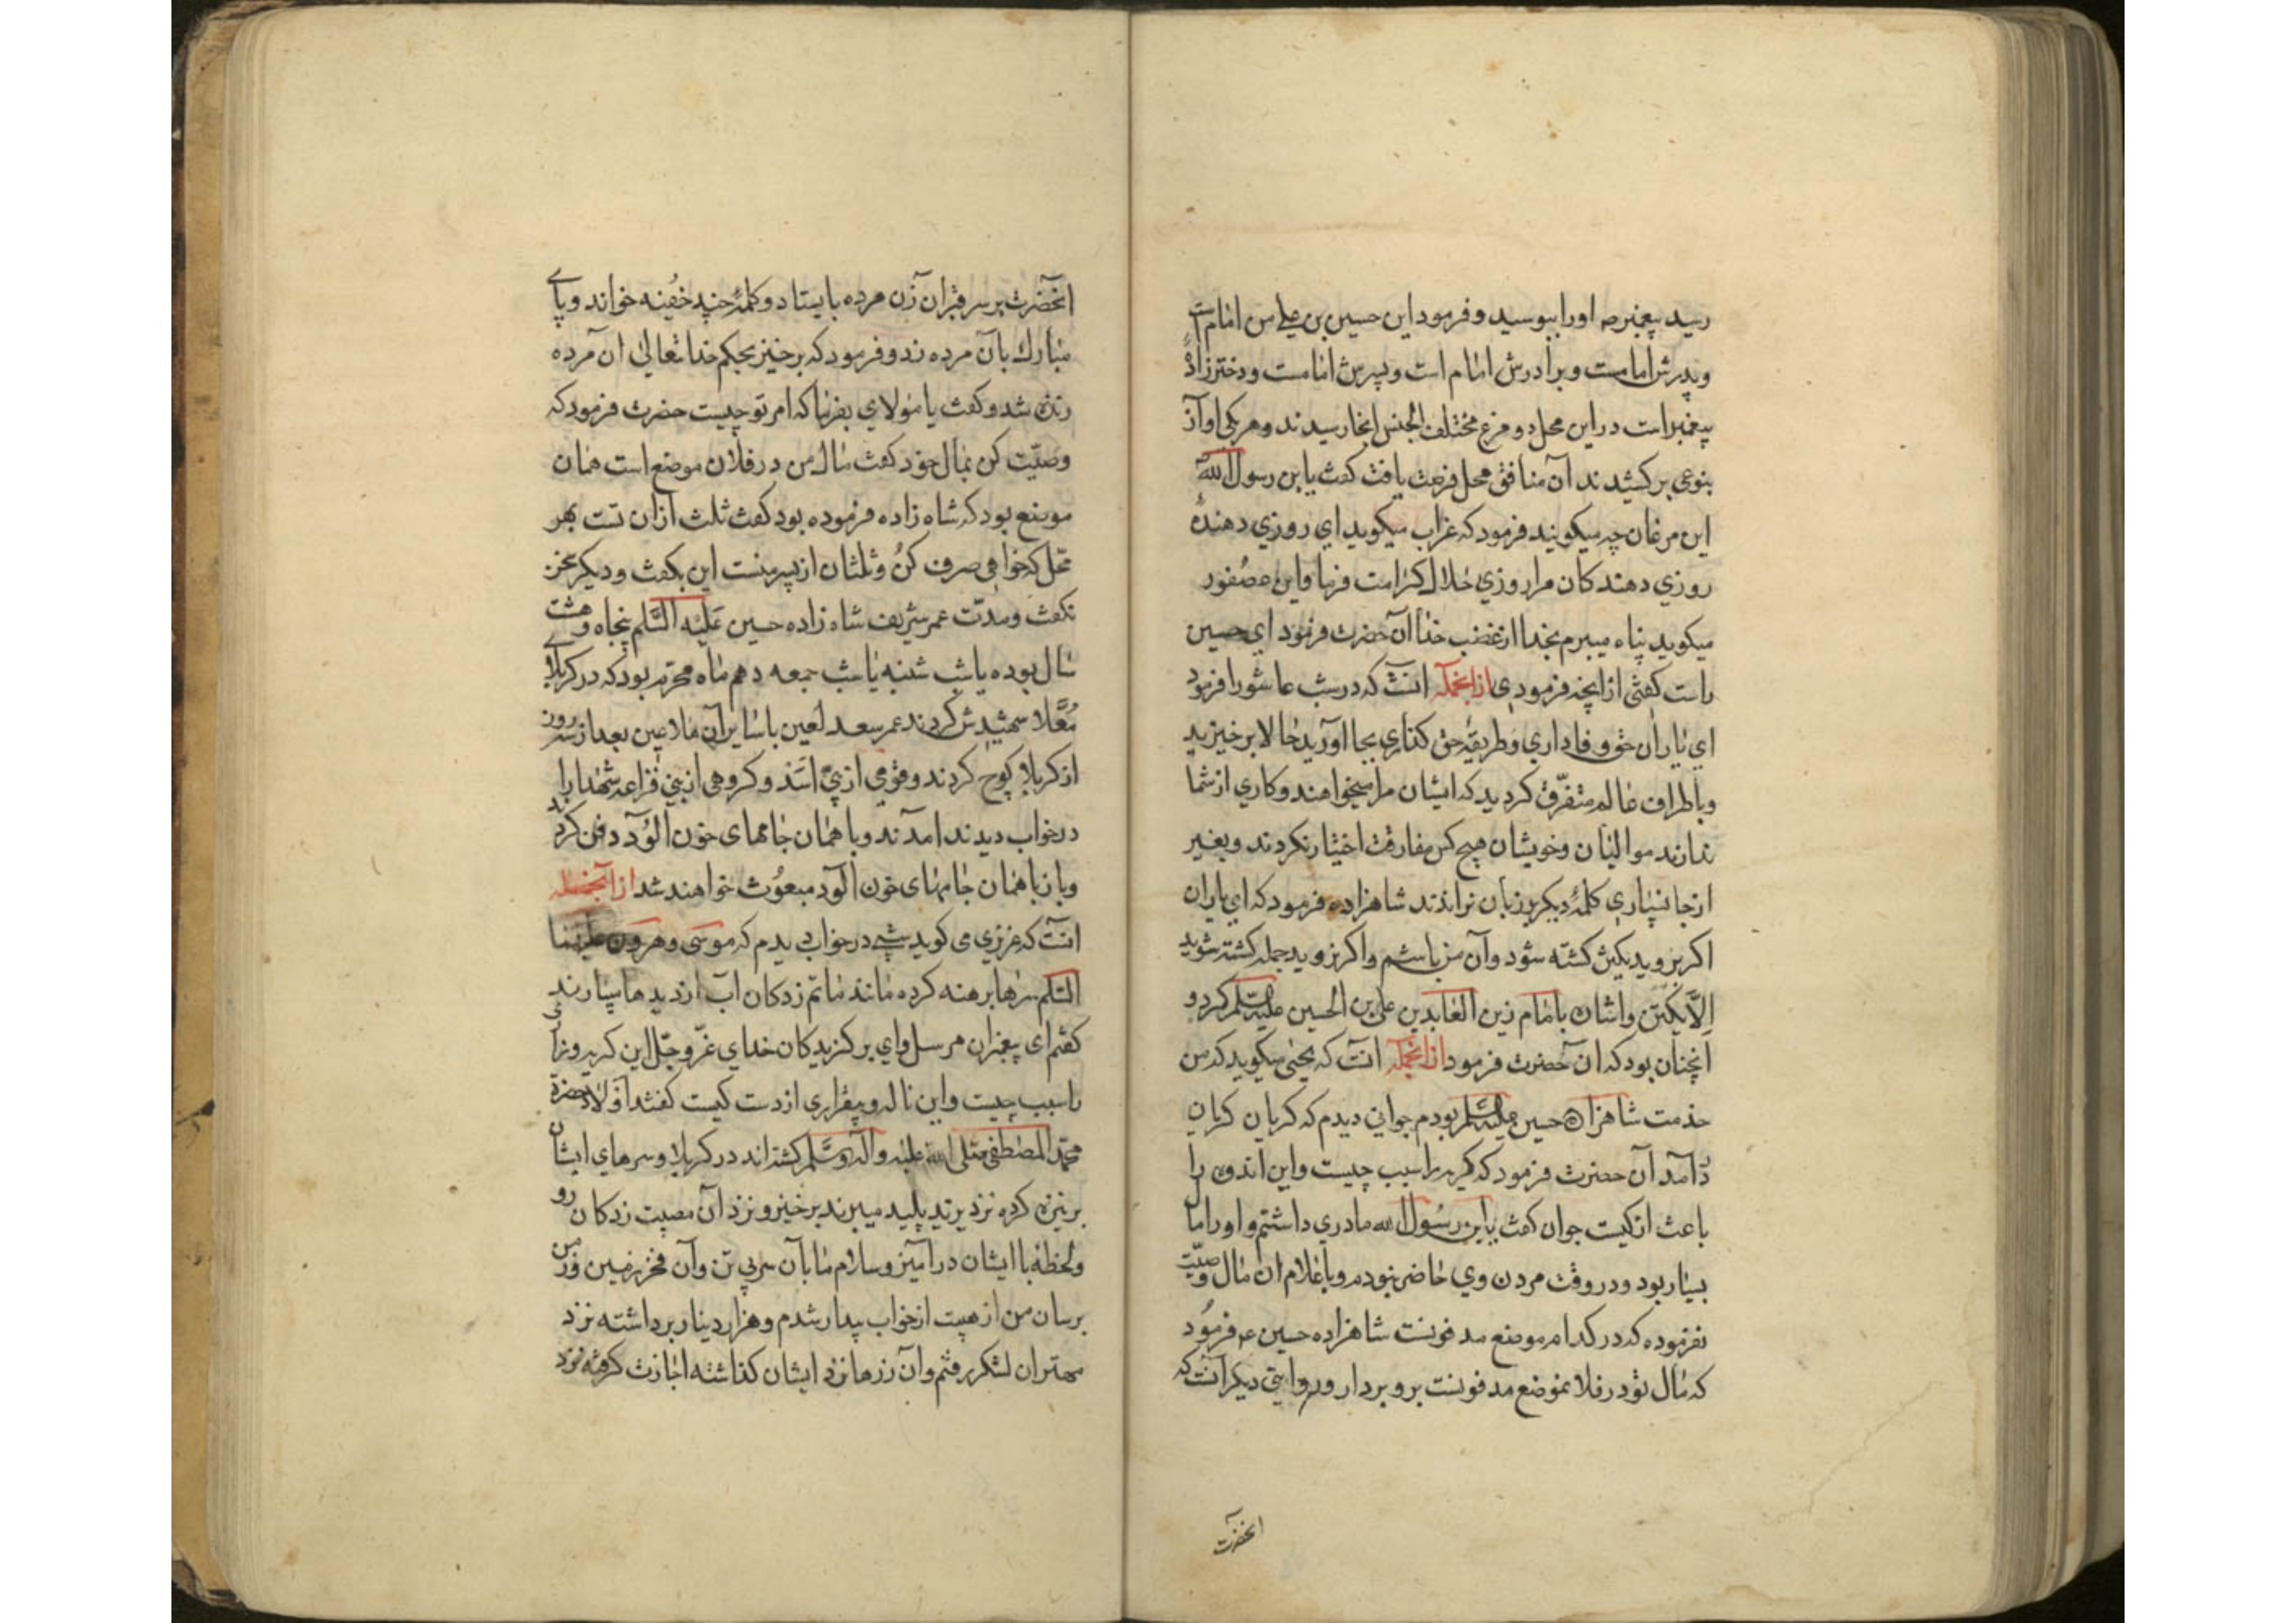 رسید پیغمبر ص اورا ببوسید و فرمود این حسین بن علی من امام است
و پدرش امامست و برادرش امام است و پسرش امامست و دخترزادهٔ
پیغمبر است در این محل دو مرغ مختلف الجنس انجا رسیدند و هر یکی اواز
بنوعی برکشیدند آن منافق محل فرصت یافت کفت یا بن رسول الله
این مرغان چه میکویند فرمود که غراب میکوید ای روزی دهندهٔ
روزی دهندکان مرا روزی حلال کرامت فرما و این عصفور
میکوید پناه میبرم بخدا از غضب خدا آن حضرت فرمود ای حسین
راست کفتی از انچه فرمودی ازانجمله انست که در شب عاشورا فرمود
ای یاران حق وفاداری و طریقهٔ حق کذاری بجا اوردید حالا برخیزید
و باطراف عالم متفرق کردید که ایشان مرا میخواهند و کاری از شما
ندارند موالیان و خویشان هیچ کس مفارقت اختیار نکردند و بغیر
از جانسپاری کلمهٔ دیکر بر زبان نراندند شاهزاده فرمود که ای یاران
اکر بروید یکتن کشته شود و آن من باشم و اکر نروید جمله کشته شوید
الّا یکتن و اشارت بامام زین العابدین علی بن الحسین علیه السلم کرد و
انچنان بود که ان حضرت فرمود ازانجمله انست که یحیی میکوید که من
خدمت شاهزاده حسین علیه السلم بودم جوانی دیدم که کریان کریان
درآمد آن حضرت فرمود که کریه را سبب چیست و این اندوه را
باعث از کیست جوان کفت یابن رسول الله مادری داشتم و اورا مال
بسیار بود و در وقت مردن وی حاضر نبودم و باعلام ان مال وصیّت
نفرموده که در کدام موضع مدفونست شاهزاده حسین ع فرمود
که مال تو در فلان موضع مدفونست برو بردار و روایتی دیکر آنست که
انحضرت
انحضرت بر سر قبر ان زن مرده بایستاد و کلمهٔ چند خفیه خواند و پای
مبارك بآن مرده زد و فرمود که برخیز بحکم خدا تعالی ان مرده
زنده شد و کفت یا مولای بفرما که امر تو چیست حضرت فرمود که
وصیّت کن بمال خود کفت مال من در فلان موضع است همان
موضع بود که شاه زاده فرموده بود کفت ثلث از ان تست بهر
محل که خواهی صرف کن و ثلثان از پسر منست این بکفت و دیکر سخن
نکفت و مدّت عمر شریف شاه زاده حسین علیه السّلم پنجاه و هشت
سال بوده یا شب شنبه یا شب جمعه دهم ماه محرم بود که در کربلای
مُعلّا شهیدش کردند عمر سعد لعین با سایر آن ملاعین بعد از سه روز
از کربلا کوچ کردند و قومی از بنی اسد و کروهی از بنی قزاعه شهدا را
در خواب دیدند امدند و با همان جامهای خون الود دفن کردند
و باز با همان جامهای خون الود مبعوث خواهند شد ازانجمله
انست که عزیزی می کوید شبی در خواب دیدم که موسی و هرون علیهما
السّلم سرها برهنه کرده مانند ماتم زدکان آب از دیدها میبارند
کفتم ای پیغمبران مرسل و ای برکزیدکان خدای عزّ و جلّ این کریه و زاری
را سبب چیست و این ناله و بیقراری از دست کیست کفتند اولاد حضرة
محمد المصطفی صلی الله علیه و اله و سلّم کشته اند در کربلا و سرهای ایشان
بر نیزه کرده نزد یزید پلید میبرند برخیز و نزد آن مصیبت زدکان رو
و لحظه با ایشان درآمیز و سلام ما بآن سر بی تن و آن فخر زمین و زمن
برسان من از هیبت از خواب بیدار شدم و هزار دینار برداشته نزد
مهتران لشکر رفتم و آن زرها نزد ایشان کذاشته اجازت کرفته نزد